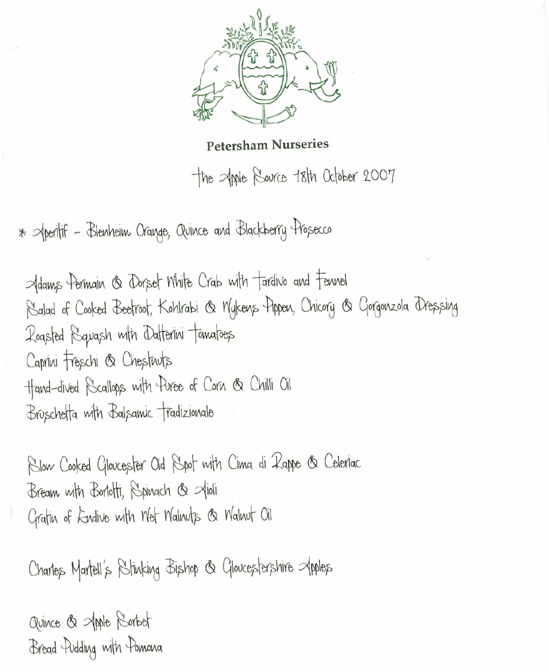 Petersham Nurseries
The Apple Source 18th October 2007
* Aperitif - Blenheim Orange, Quince and Blackberry Prosecco
Adams Permain & Dorset White Crab with Tardivo and Fennel
Salad of Cooked Beetroot, Kohlrabi & Wykens Pippen, Chicory & Gorgonzola Dressing
Roasted Squash with Datterini Tomatoes
Caprini Freschi & Chestnuts
Hand-dived Scallops with Puree of Corn & Chilli Oil
Bruschetta with Balsamic Tradizionale
Slow Cooked Gloucester Old Spot with Cima di Rappe & Celeriac
Bream with Borlotti, Spinach & Aioli
Gratin of Endive with Wet Walnuts & Walnut Oil
Charles Martell's Stinking Bishop & Gloucestershire Apples
Quince & Apple Sorbet
Bread Pudding with Pomona